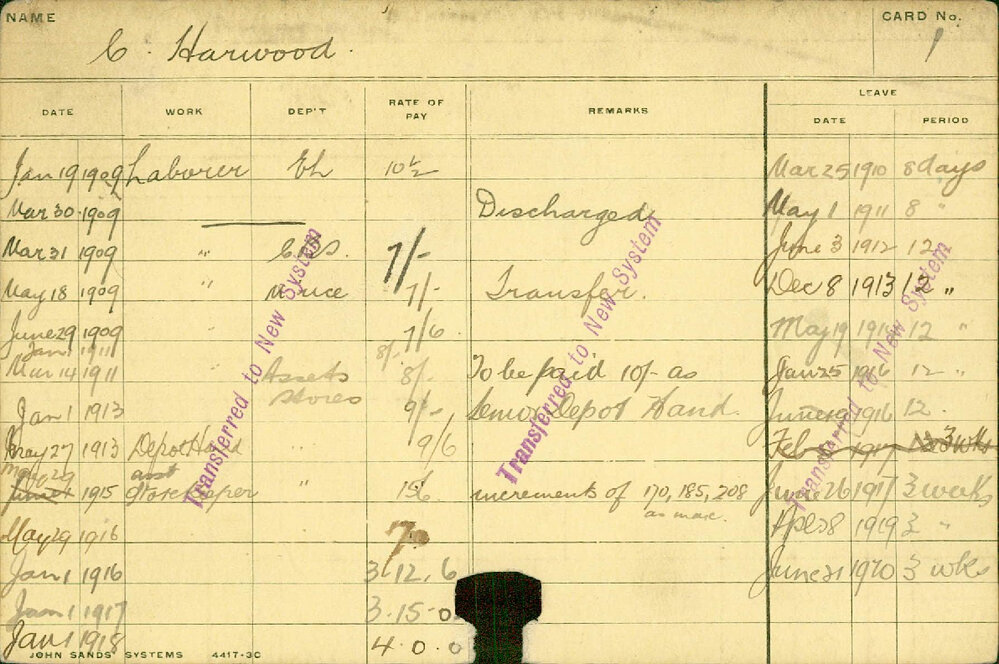 NAME CARD No.
C. Harwood. 1
LEAVE
DATE WORK DEP'T RATE OF PAY REMARKS DATE PERIOD
Jan 19 1909 Laborer 10½ Mar 25 1910 8 days
Mar 30 1909 Discharged May 1 1911 8 "
Mar 31 1909 " 7/- June 3 1912 12
May 18 1909 " 7/- Transfer. Dec 8 1913 12 "
June 29 1909 7/6 May 19 12 "
Jan 1 1911 8/-
Mar 14 1911 Assets 8/- To be paid 10/- as Jan 25 1916 12 "
Jan 1 1913 Stores 9/- Senior Depot Hand. June 1916 12
May 27 1913 Depot Hand " 9/6 Feb 1917 3 wks
May 29 asst
June 1 1915 Storekeeper " increments of 170, 185, 208 June 26 1917 3 weeks
as max.
May 29 1916 Apl 28 1919 3 "
Jan 1 1916 3.12.6 June 21 1920 3 wks
Jan 1 1917 3.15.0
Jan 1 1918 4.0.0
Transferred to New System
Transferred to New System
Transferred to New System
JOHN SANDS' SYSTEMS 4417-3C